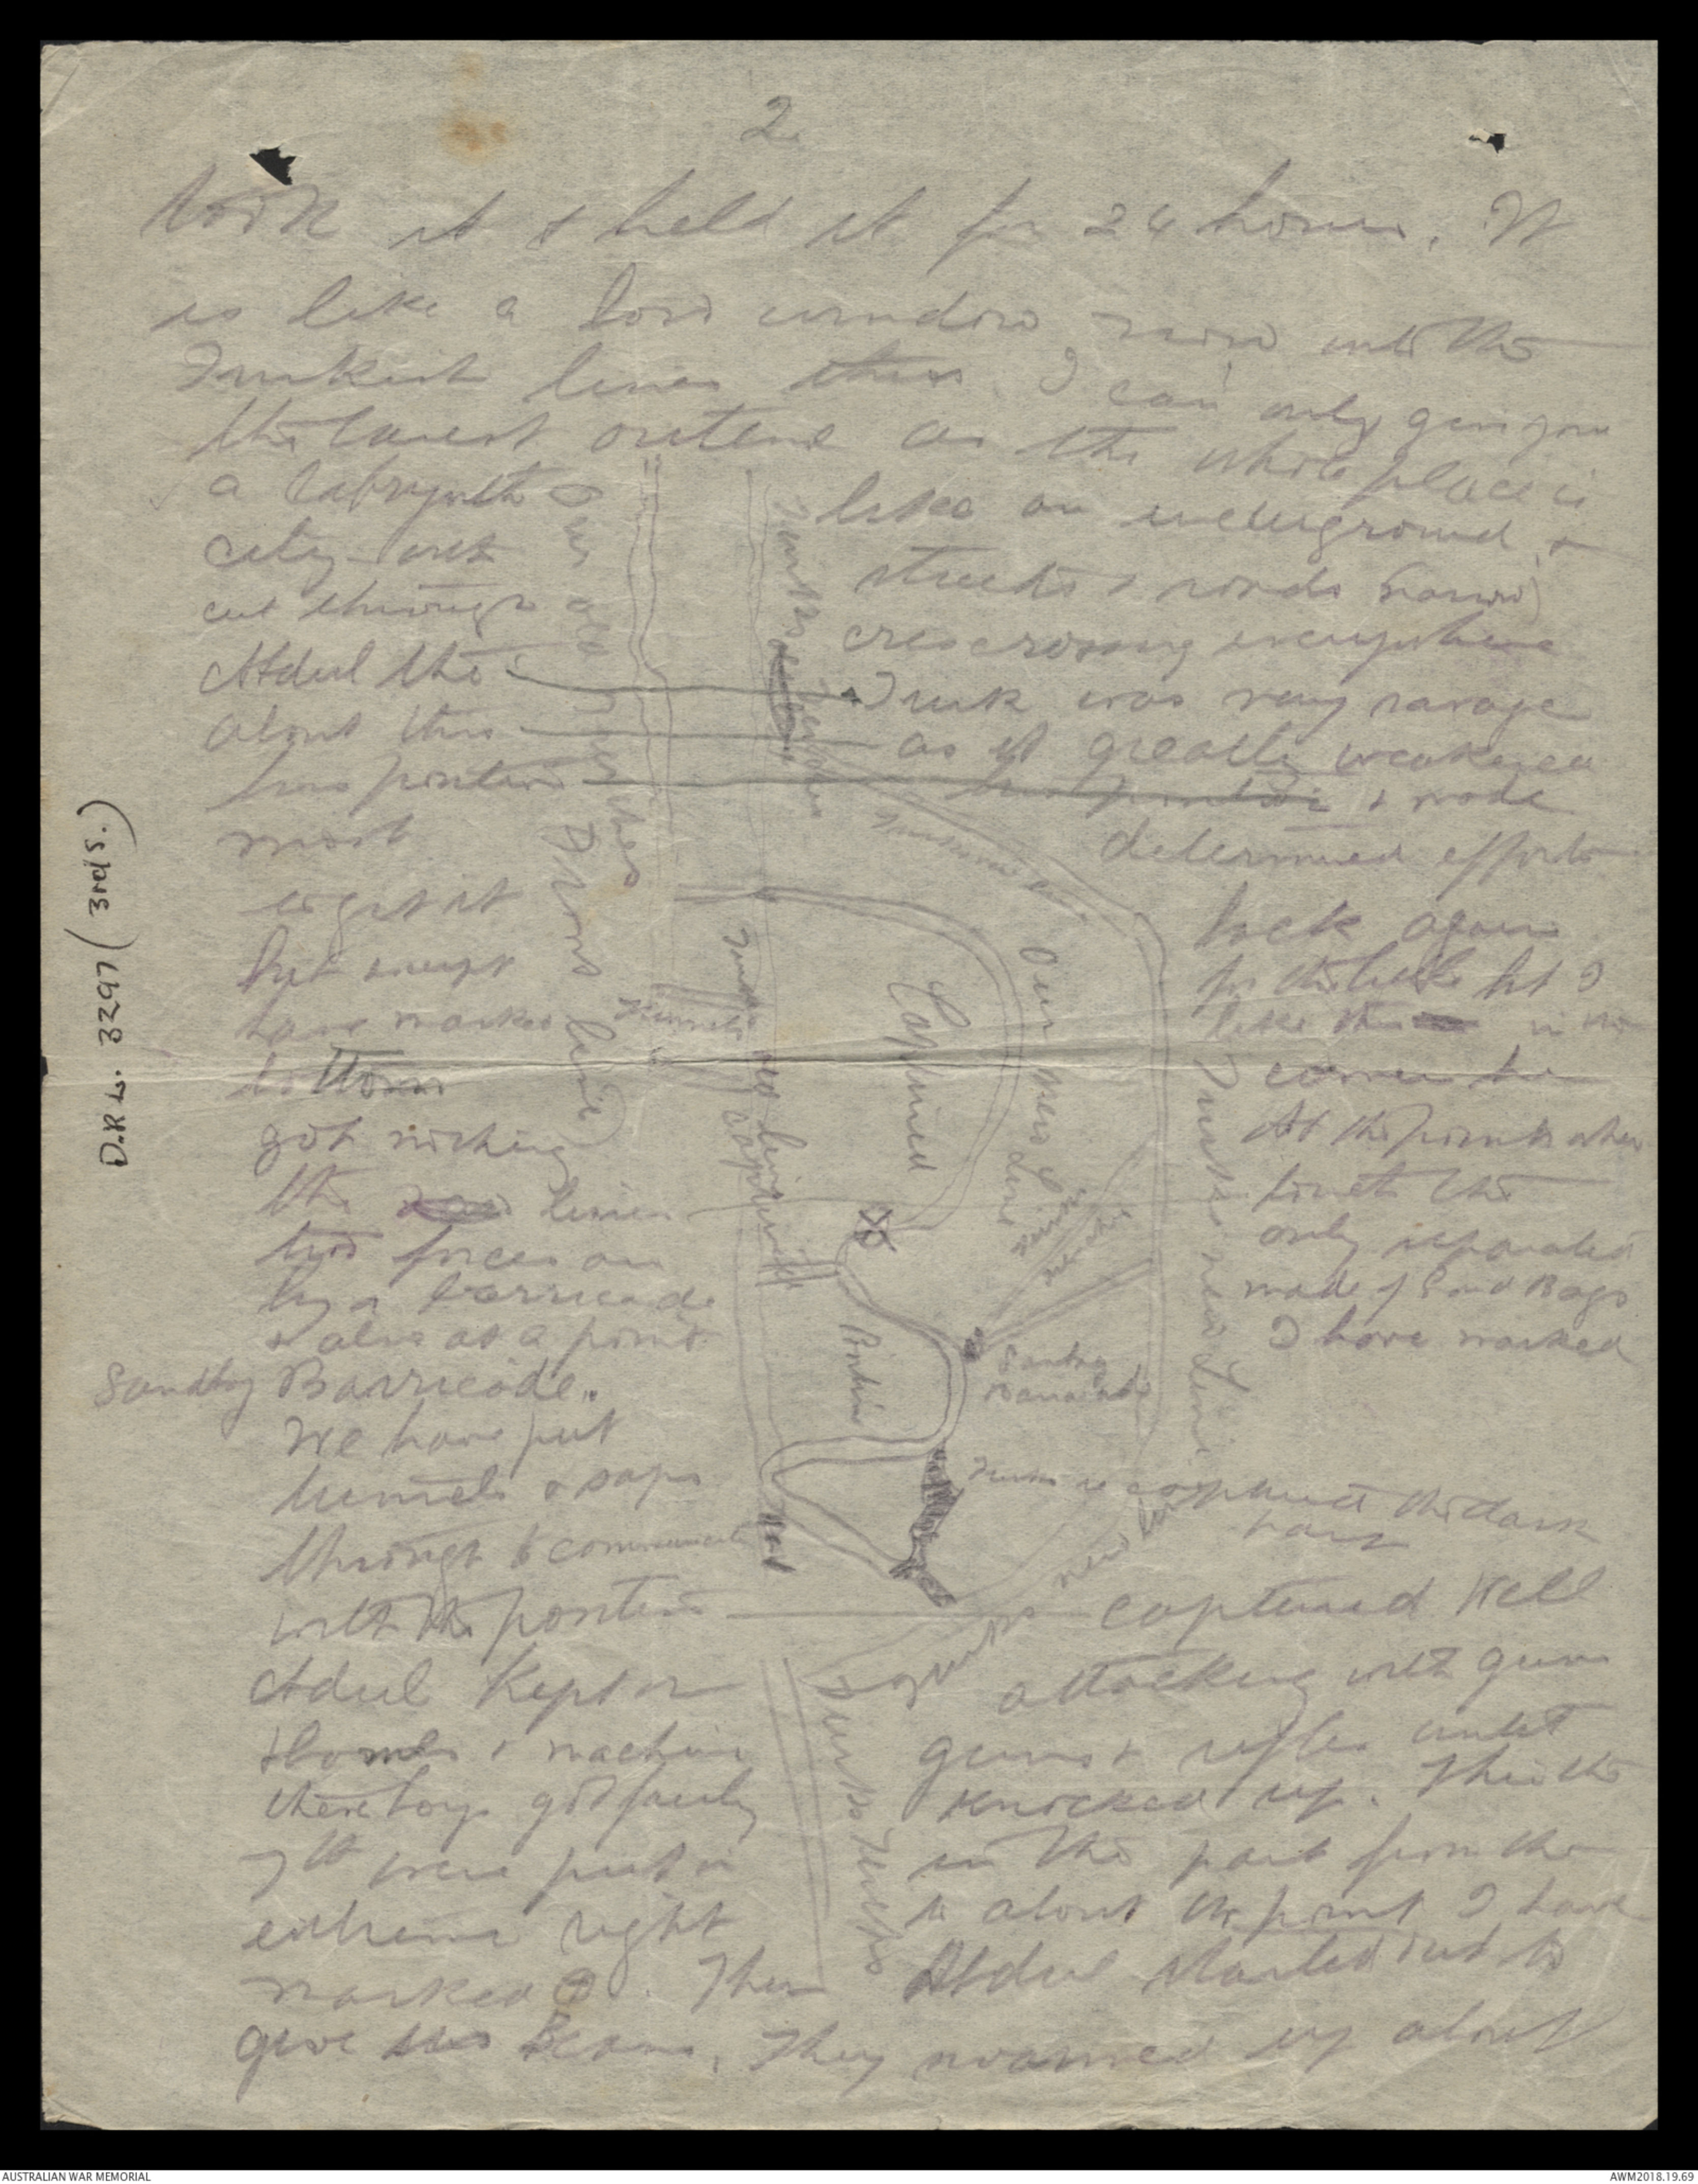 2
took it & held it for 24 hours. It
is like a bow window now into the
Turkish lines there. I can only give you
the barest outline as the whole place is
a labrynth like an underground &
city with streets & roads (narrow)
cut through crescrossing everywhere
Abdul the Turk was very savage
about this as it greatly weakened
his position & made
most determined efforts
to get it back again
but except for the little bit I
have marked like this in the
bottom corner he
got nothing At the points where
the lines meet the
two forces are only separated
by a barricade made of Sand Bags
& also at a point I have marked
Sandbag Barricade.
We have put
tunnels & saps
through to communicate
with the position captured. Well
Abdul kept on attacking with guns
& bombs & machine guns & rifles until
these boys got fairly knocked up. Then the
7th were put in in the part from the
extreme right to about the point I have
marked . Then Abdul started out to
give us Beans. They swarmed up about
Our old
Front line
Turks
Tunnels
old line
Captured
Our new Line
Turks new Line
Position
Sandbag
Barricade
Turks recaptured this dark
part
Turks new line
Turks Trenches
D.R.L. 3297 (3rd S.)
AUSTRALIAN WAR MEMORIAL
AWM2018.19.69